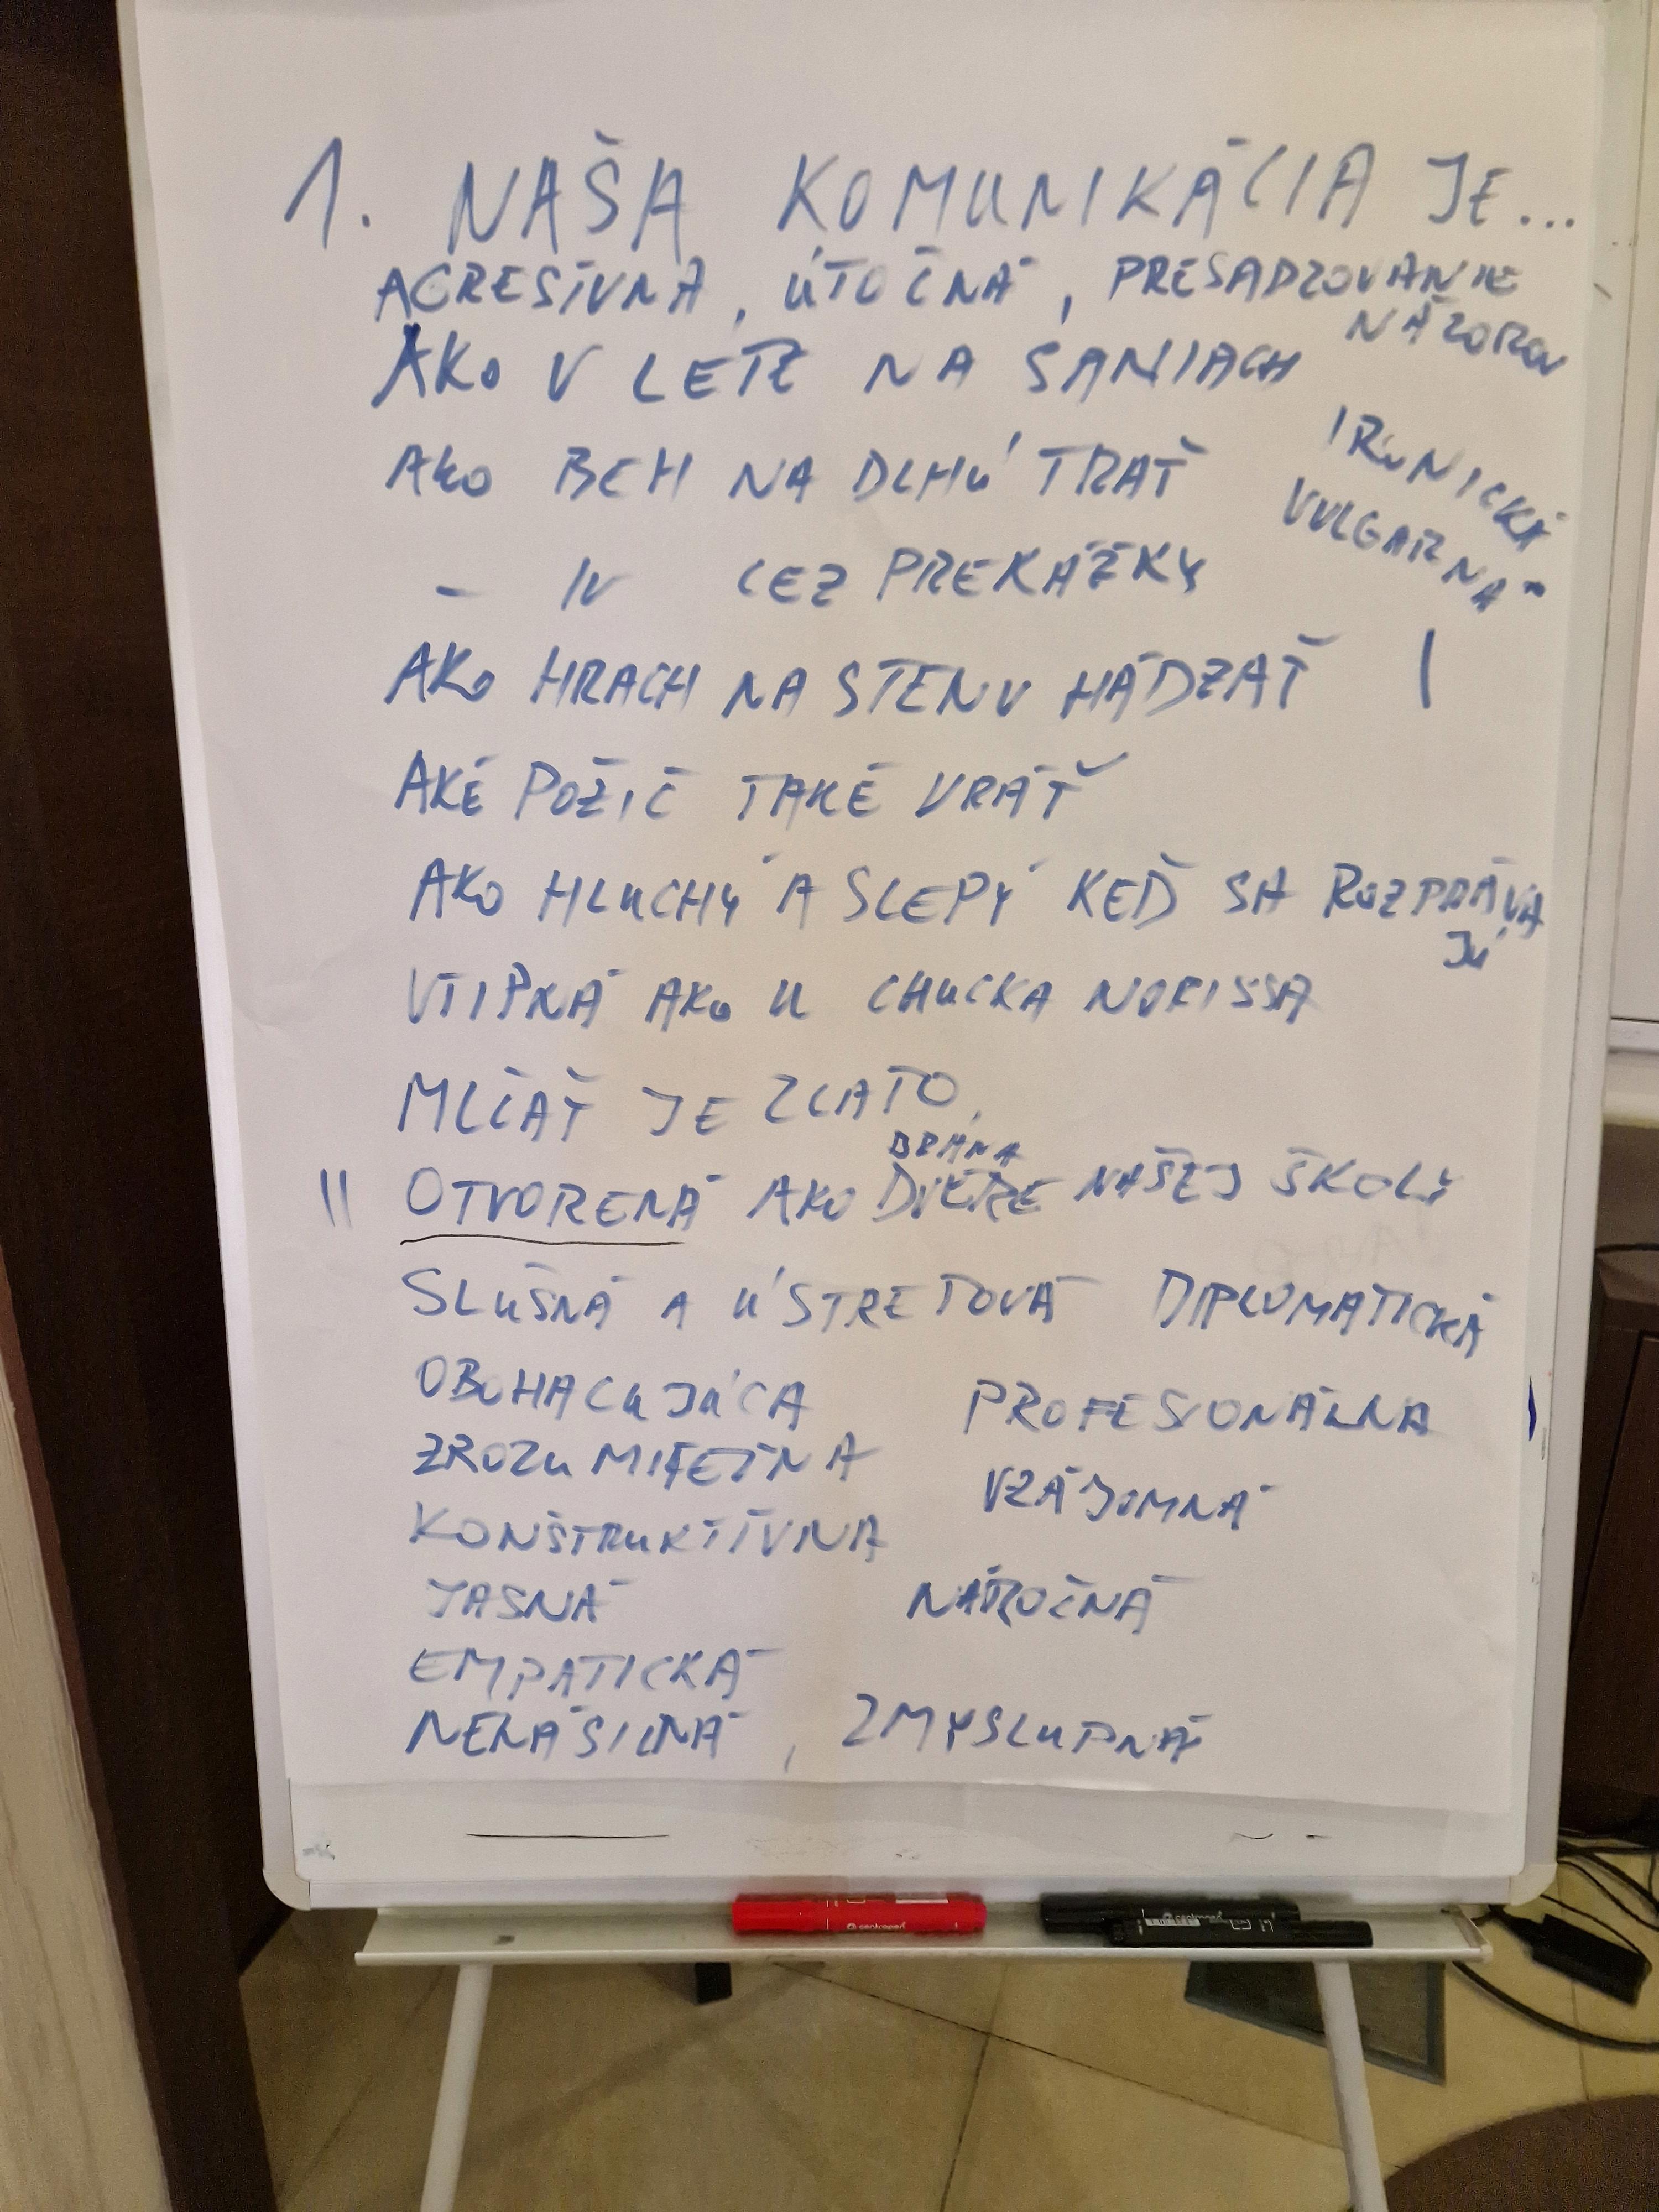 1. NAŠA KOMUNIKÁCIA JE...
AGRESÍVNA, ÚTOČNÁ, PRESADZOVANIE
NÁZOROV
AKO V LETE NA SANIACH
IRONICKÁ
AKO BEH NA DLHÚ TRAŤ
VULGÁRNA
- 11 CEZ PREKÁŽKY
AKO HRACH NA STENU HÁDZAŤ |
AKÉ POŽIČ TAKÉ VRÁŤ
AKO HLUCHÝ A SLEPÝ KEĎ SA ROZPRÁVA
JÚ
VTIPNÁ AKO U CHUCKA NORISSA
MLČAŤ JE ZLATO,
BRÁNA
|| OTVORENÁ AKO DVERE NAŠEJ ŠKOLY
SLUŠNÁ A ÚSTRETOVÁ DIPLOMATICKÁ
OBOHACUJÚCA PROFESIONÁLNA
ZROZUMITEĽNÁ
VZÁJOMNÁ
KONŠTRUKTÍVNA
JASNÁ NÁROČNÁ
EMPATICKÁ
NENÁSILNÁ, ZMYSLUPNÁ
centropen
centropen